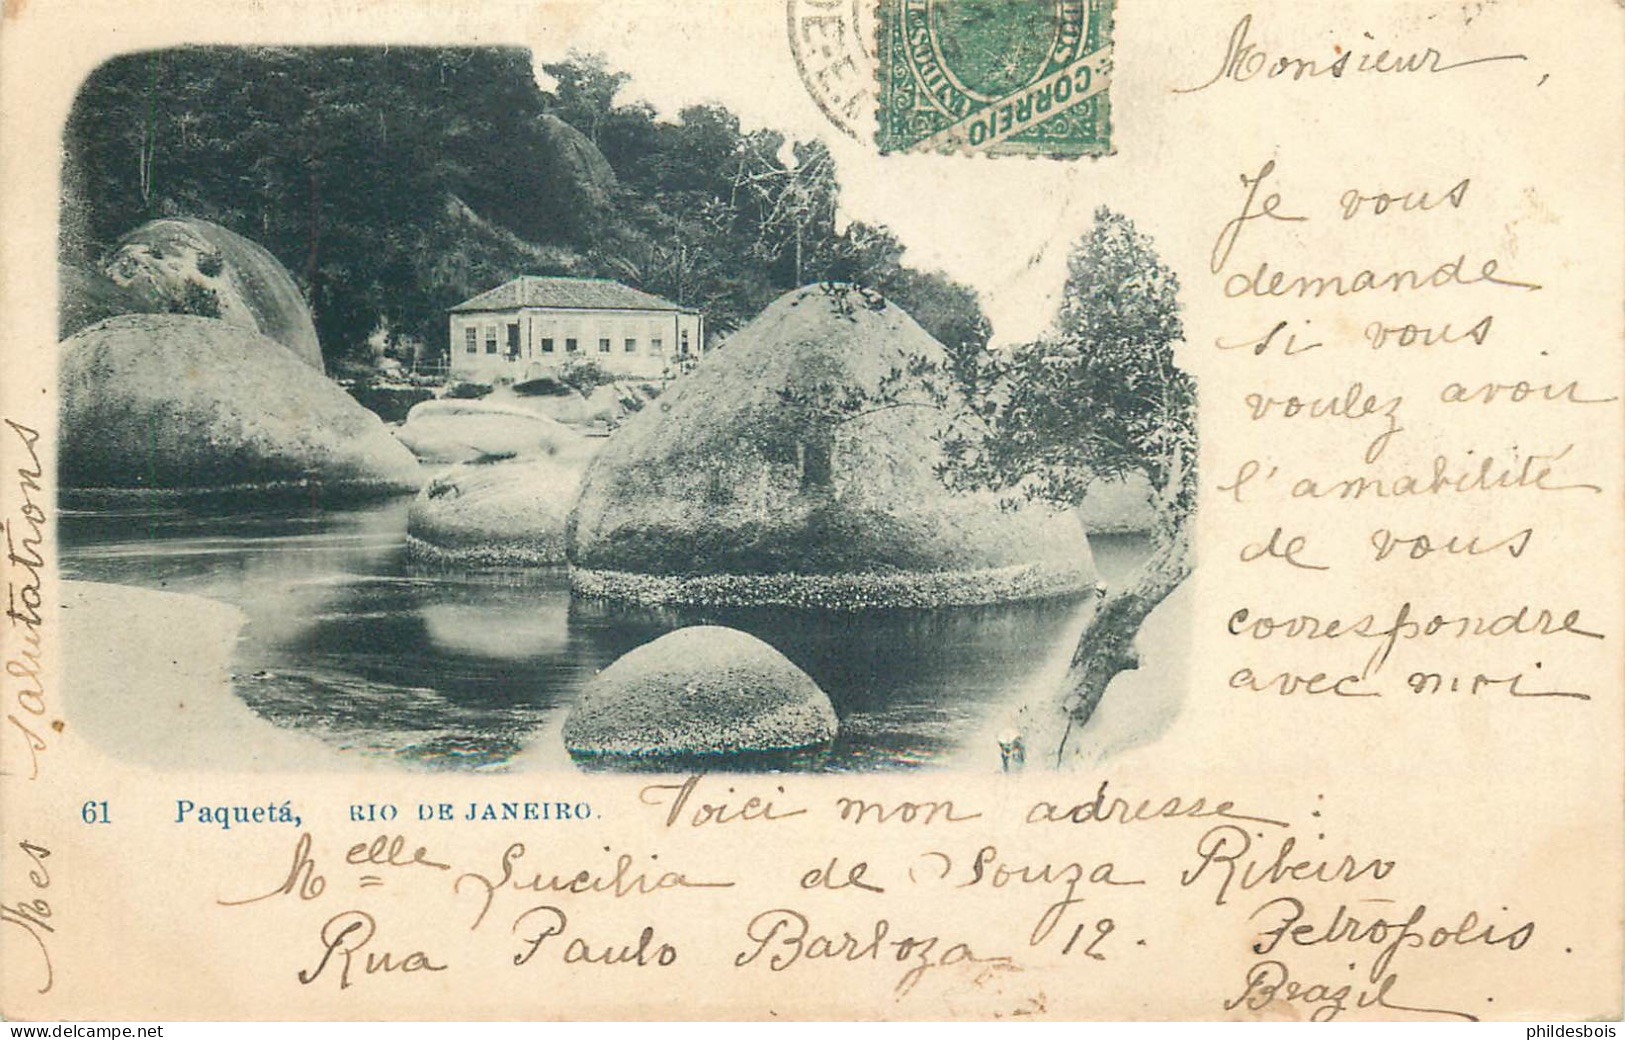 Monsieur,
Je vous
demande
si vous
voulez avoir
l'amabilité
de vous
correspondre
avec moi
61 Paquetá, RIO DE JANEIRO.
Voici mon adresse :
Melle Lucilia de Souza Ribeiro
Rua Paulo Barboza 12. Petrōpolis.
Brazil.
Mes salutations.
CORREIO
phildesbois